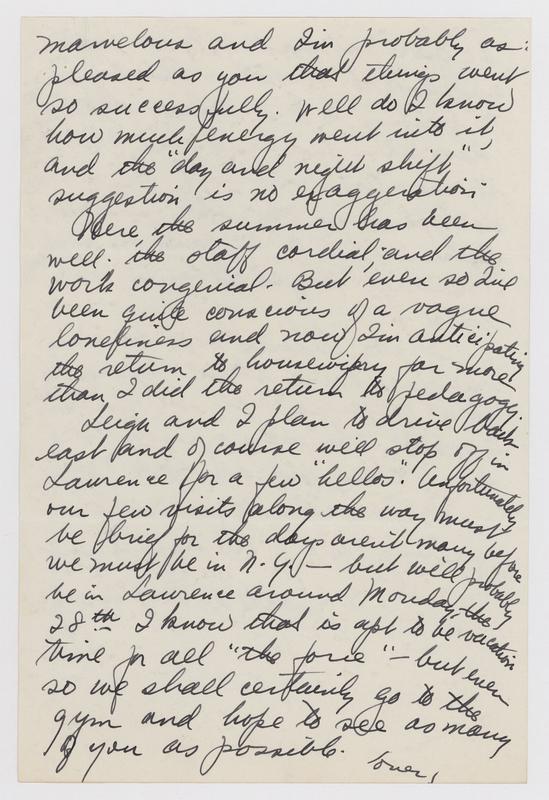 marvelous and I'm probably as
pleased as you that things went
so successfully. Well do I know
how much energy went into it,
and the "day and night shift"
suggestion is no exaggeration
Here the summer has been
well. the staff cordial, and the
work congenial. But even so I've
been quite conscious of a vague
loneliness and now I'm anticipating
the return to housewifery far more
than I did the return to pedagogy.
Leigh and I plan to drive back
east and of course we'll stop off in
Lawrence for a few "hellos". Unfortunately
our few visits along the way must
be brief for the days aren't many before
we must be in N.Y. — but we'll probably
be in Lawrence around Monday, the
28th I know that is apt to be vacation
time for all "the force" — but even
so we shall certainly go to the
gym and hope to see as many
of you as possible.
over,